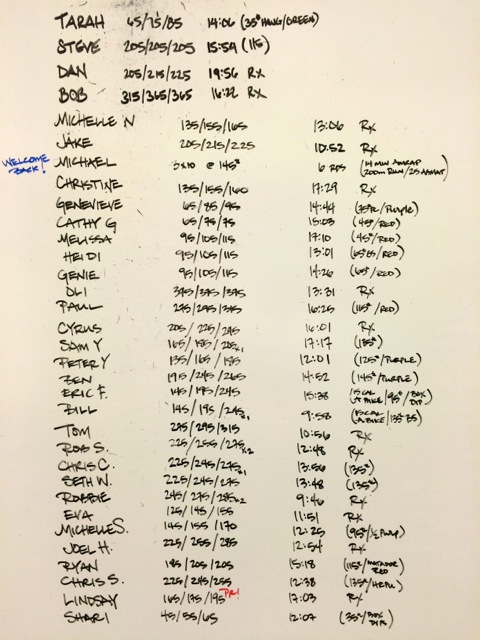 TARAH 65/75/85 14:06 (35# HANG/GREEN)
STEVE 205/205/205 15:54 (115)
DAN 205/215/225 19:56 RX
BOB 315/365/365 16:22 RX
MICHELLE N 135/155/165 13:06 RX
JAKE 205/215/225 10:52 RX
WELCOME BACK! MICHAEL 5x10 @ 145# 6 RDS (14 MIN AMRAP 200M RUN/25
CHRISTINE 135/155/160 17:29 RX
GENEVIEVE 65/85/95 14:44 (75#/PURPLE)
CATHY G 65/75/75 15:03 (45#/RED)
MELISSA 95/105/115 17:10 (45#/RED)
HEIDI 95/105/115 13:01 /RED)
GENIE 95/105/115 14:26 (65#/RED)
OLI 345/345/345 13:31 RX
PAUL 275/295/315 16:25 (115#/RED)
CYRUS 205/225/245 16:01 RX
SAM Y 165/185/205x1 17:17 (135#)
PETER Y 135/165/185 12:01 (125#/PURPLE)
ZEN 195/245/265 14:52 (145#/PURPLE)
ERIC F. 145/195/245 15:38 /95#/BOX DIP)
BILL 145/195/245x1 9:58
TOM 275/295/315 10:56 RX
ROB S. 225/255/275x2 12:48 RX
CHRIS C. 225/245/275x1 13:56 (135#)
SETH W. 225/245/275 13:48 (135#)
ROBBIE 245/275/285x2 9:46 RX
EVA 125/145/155 11:51 RX
MICHELLE S. 145/155/170 12:25 (95#/½ PURP)
JOEL H. 225/255/285 12:54 RX
RYAN 185/205/205 15:18 (115#/MATADOR RED)
CHRIS S. 225/245/255 12:38
LINDSAY 165/175/195 PR! 17:03 RX
SHARI 45/55/65 12:07 (35#/BOX DIP)